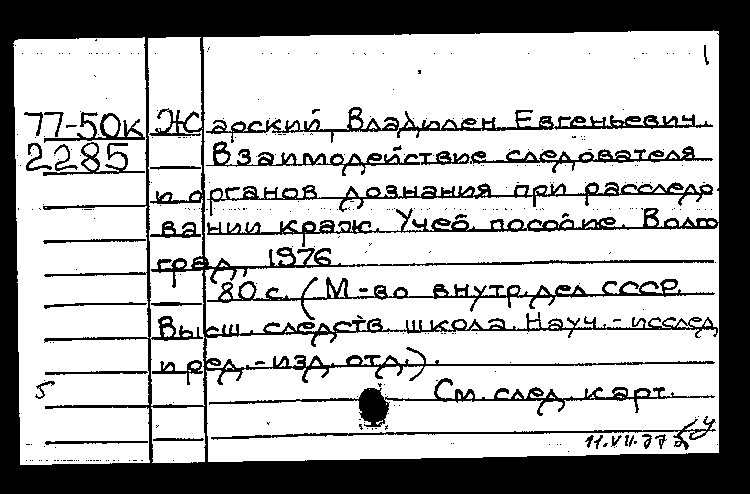 1
77-50к Жарский, Владилен Евгеньевич.
2285 Взаимодействие следователя
и органов дознания при расследо-
вании краж. Учеб. пособие. Волго
град, 1976.
80 с. (М-во внутр. дел СССР.
Высш. следств. школа. Науч.-исслед.
и ред.-изд. отд.).
5 См. след. карт.
11.VII.77